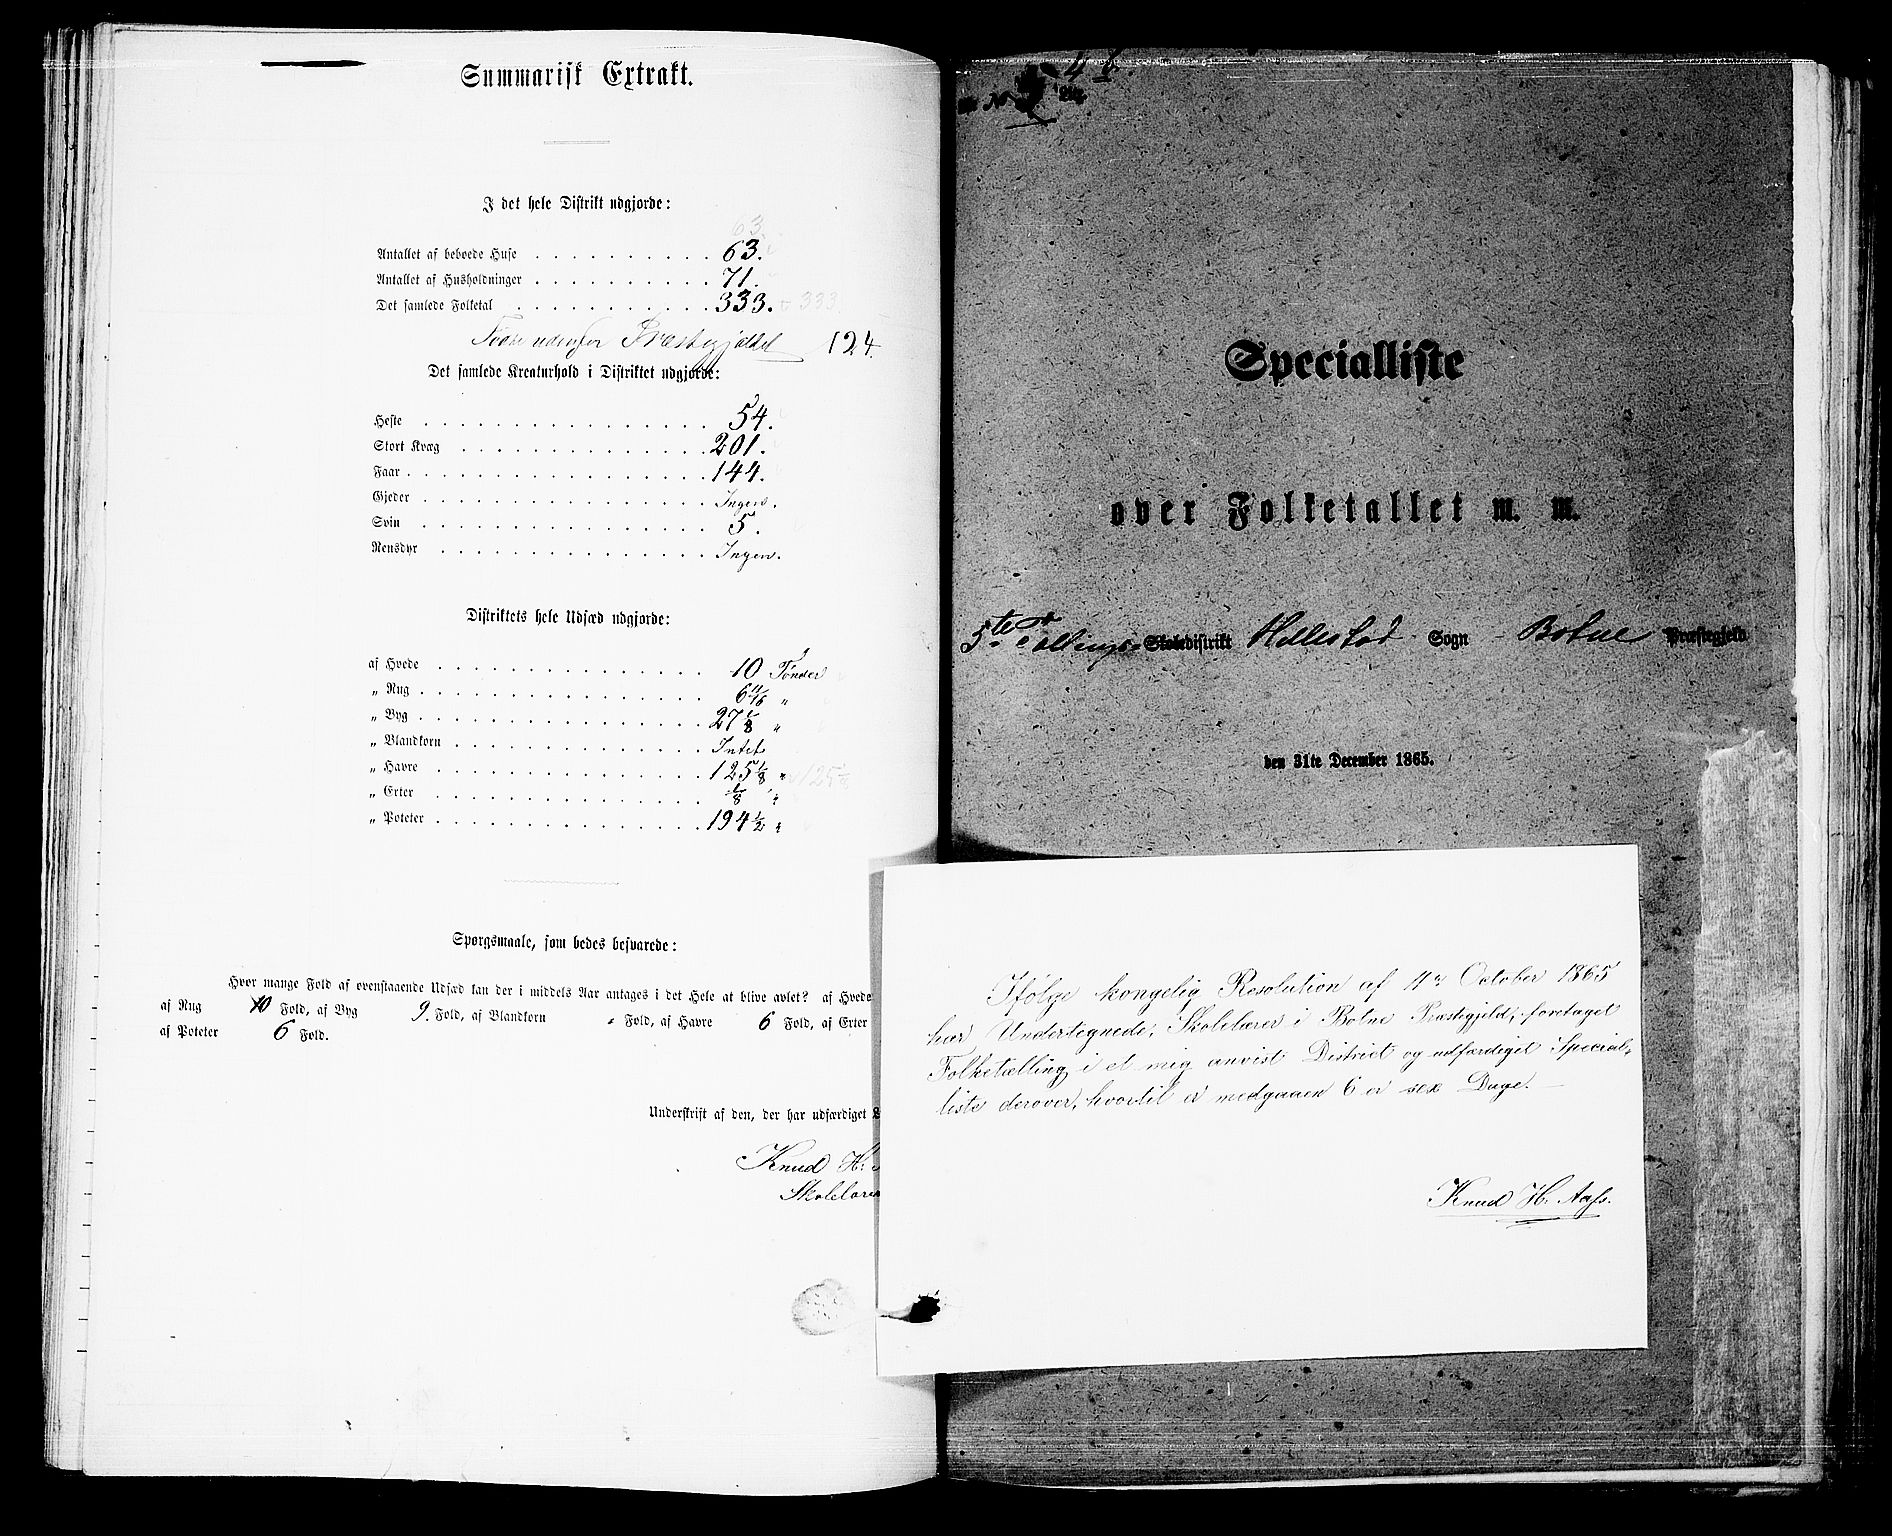 Summarisk Extrakt.
I det hele Distrikt udgjorde:
63.
Antallet af beboede Huse 63.
Antallet af Husholdninger 71.
Det samlede Folketal 333. 333
Fødte udenfor Præstegjældet 124.
Det samlede Kreaturhold i Distriktet udgjorde:
Heste 54.
Stort Kvæg 201.
Faar 144.
Gjeder Ingen.
Svin 5.
Rensdyr Ingen.
Distriktets hele Udsæd udgjorde:
af Hvede 10 Tønder
„ Rug 6 11/16 „
„ Byg 27 1/8 „
„ Blandkorn Intet
„ Havre 125 1/8 „ 125
„ Erter 1/8 „
„ Poteter 194 1/2 „
Spørgsmaale, som bedes besvarede:
Hvor mange Fold af ovenstaaende Udsæd kan der i middels Aar antages i det Hele at blive avlet? af Hvede
af Rug 10 Fold, af Byg 9. Fold, af Blandkorn „ Fold, af Havre 6 Fold, af Erter
af Poteter 6 Fold.
Underskrift af den, der har udfærdiget
Knud H.
Skolelærer
Specialliste
over Folketallet m. m.
5te Tællings- Skoledistrikt Hillestad Sogn Botne Præstegjeld
den 31te December 1865.
Ifølge kongelig Resolution af 4de October 1865
har Undertegnede, Skolelærer i Botne Præstegjeld, foretaget
Folketælling i et mig anvist District og udfærdiget Special-
liste derover, hvortil er medgaaen 6 er sex Dage. —
Knud H. Aass.